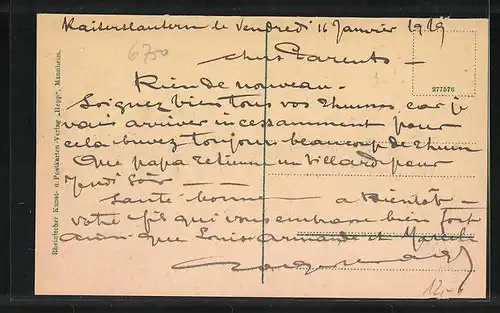 Kaiserslautern le Vendredi 16 Janvier 1919
6700
chers Parents —
Rien de nouveau.
Soignez bien tous vos rhumes car je
vais arriver incessamment pour
cela buvez toujours beaucoup de rhum
Que papa retienne un billard pour
Jeudi soir —
Santé bonne — a Bientôt —
votre fils qui vous embrasse bien fort
ainsi que Louis Armande et Marcel
12,-
277576
Rheinischer Kunst- u. Postkarten-Verlag „Hepp", Mannheim.